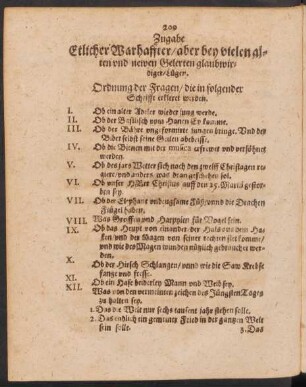 209
Zugabe
Etlicher Warhaffter/aber bey vielen al-
ten vnd newen Gelerten glaubwir-
diger/Lügen.
Ordnung der Fragen/die in folgender
Schrifft erkleret werden.
I. Ob ein alter Adeler wieder jung werde.
II. Ob der Basilisch von Hanen Ey komme.
III. Ob der Bähr vngeformte jungen bringe. Vnd der
Biber selbst seine Geilen abbeisse.
IV. Ob die Bienen mit der musica erfrewet vnd versöhnet
werden.
V. Ob des jars Wetter sich nach den zwelff Christagen re-
giere/vnd anders was dran geschehen sol.
VI. Ob vnser HErr Christus auff den 25. Martij gestor-
ben sey.
VII. Ob der Elephant vnbeugsame Füß/vnnd die Drachen
Flügel haben.
VIII. Was Greiffen vnd Harpyien für Vögel sein.
IX. Ob das Haupt von einander der Hals aus dem Ha-
cken/vnd der Magen von seiner stelle komme/
vnd wie des Magen wunden nützlich gebunden wer-
den.
X. Ob der Hirsch Schlangen/vnnd wie die Saw Krebse
fange vnd fresse.
XI. Ob ein Hase beiderley Mann vnd Weib sey.
XII. Was von den vermeinten zeichen des Jüngsten Tages
zu halten sey.
1. Das die Welt nur sechs tausent jahr stehen solle.
2. Das endlich ein gemeiner Fried in der gantzen Welt
sein solle.
3. Das